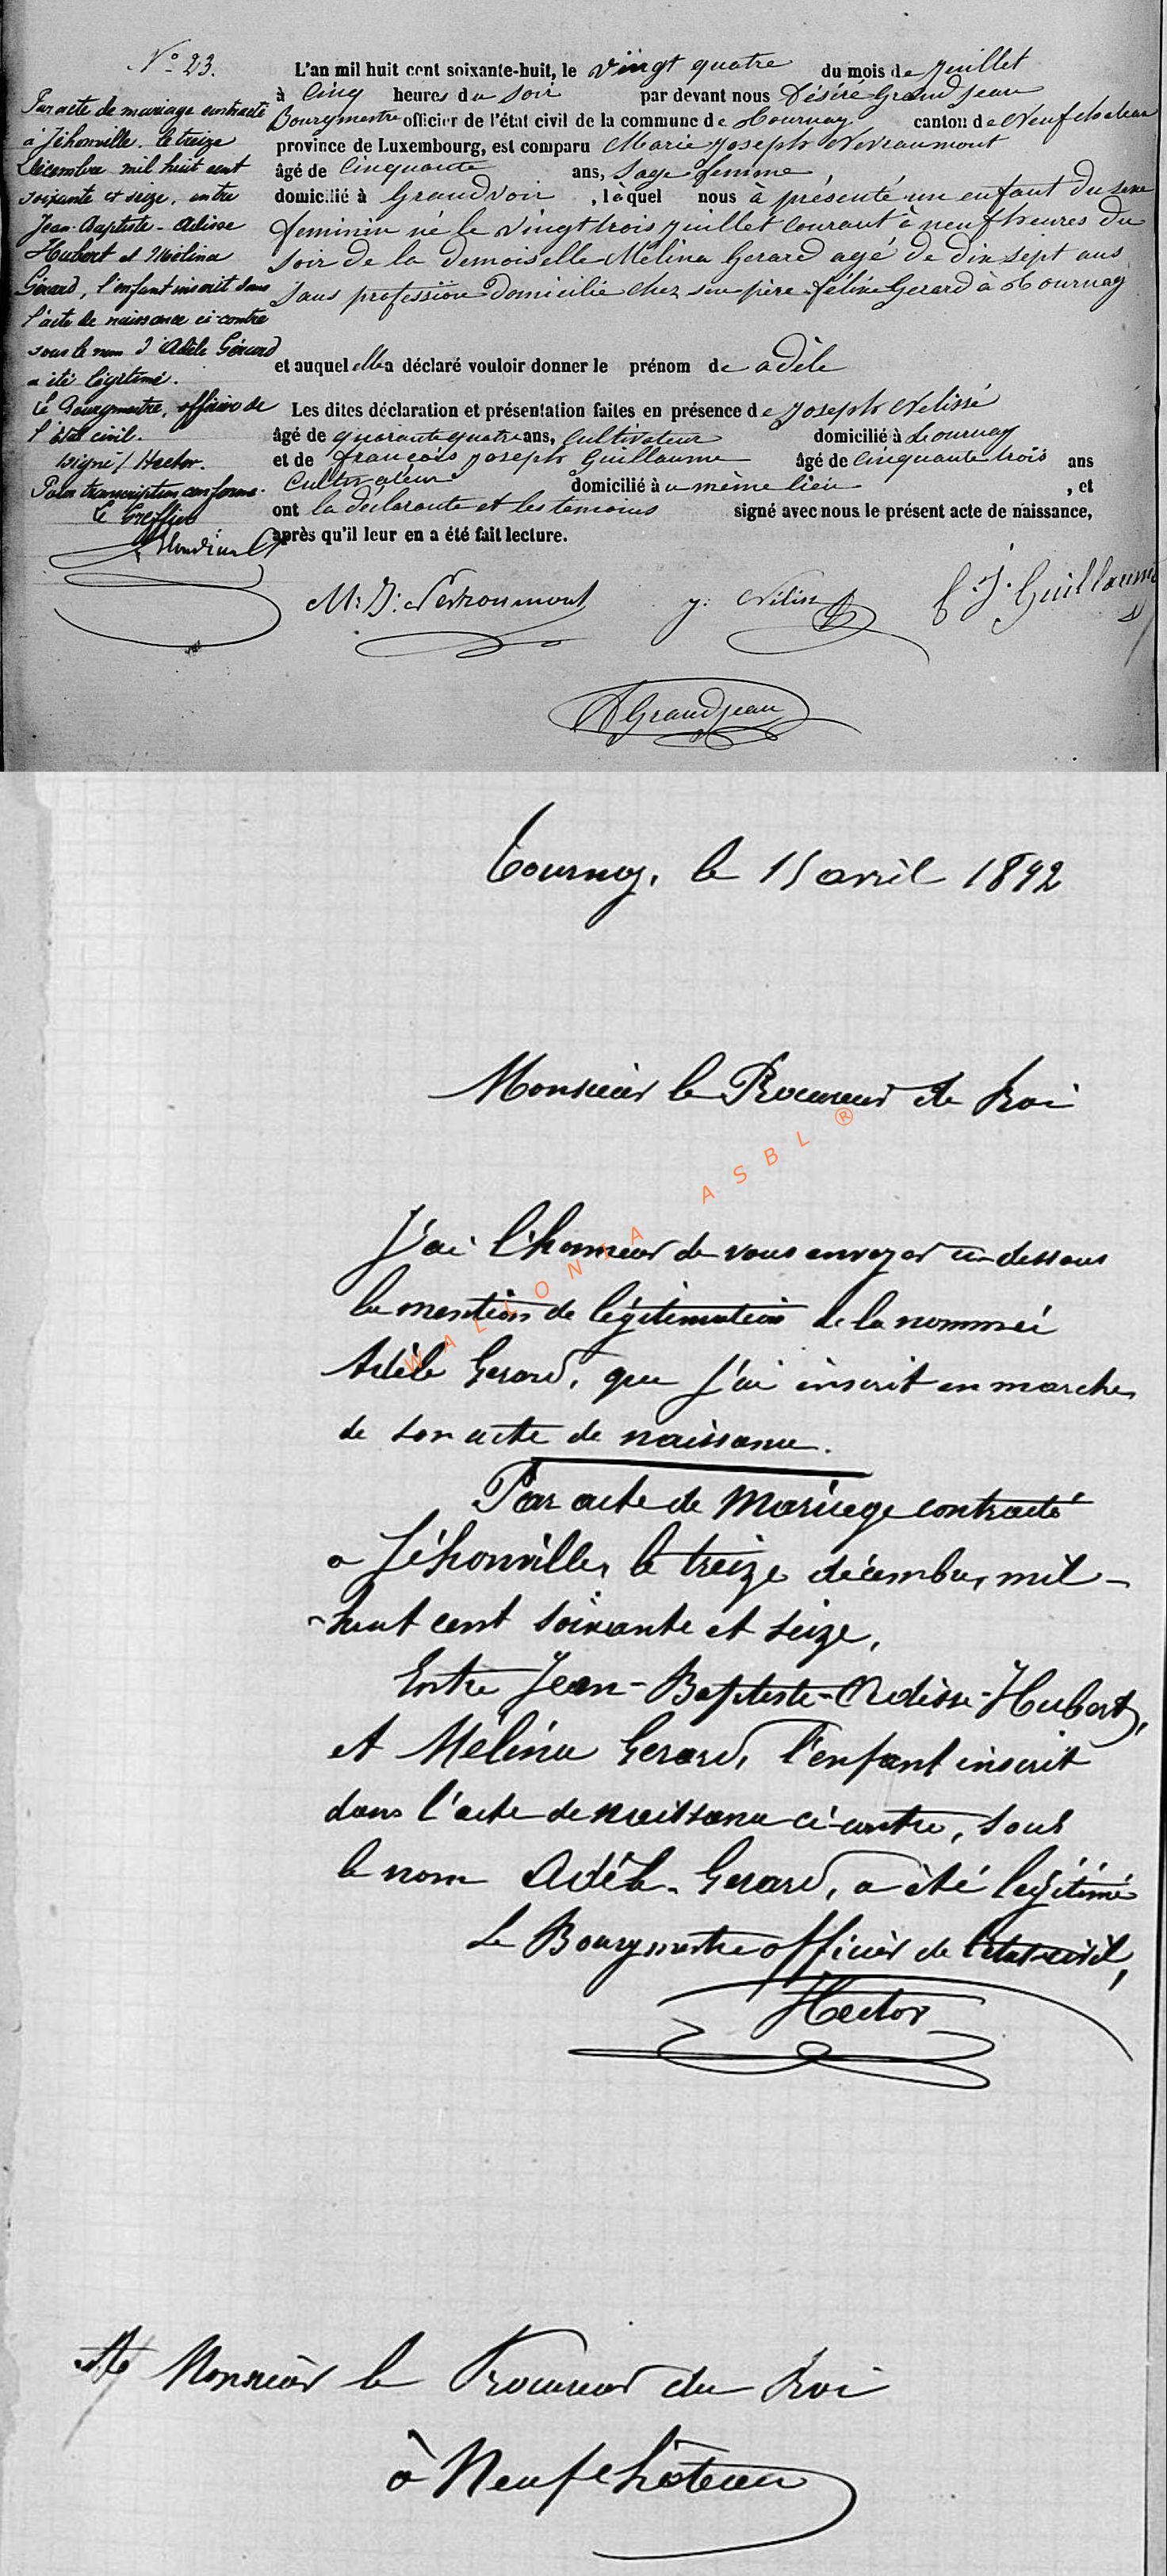 N° 23.
Par acte de mariage contracté
à Jéhonville le treize
décembre mil huit cent
soixante et seize, entre
Jean-Baptiste-Adisse
Hubert et Mélina
Gérard, l'enfant inscrit dans
l'acte de naissance ci-contre
sous le nom d'Adèle Gérard
a été légitimé.
Le Bourgmestre, officier de
l'état civil.
signé / Hector.
Pour transcription conforme.
Le Greffier
L'an mil huit cent soixante-huit, le vingt quatre du mois de juillet
à cinq heures du soir par devant nous Désiré Grandjean
Bourgmestre officier de l'état civil de la commune de Tournay canton de Neufchateau
province de Luxembourg, est comparu Marie Joseph Nevraumont
âgé de cinquante ans, sage femme
domicilié à Grandvoir, làquel nous à présenté un enfant du sexe
feminin né le vingt trois juillet courant à neuf heures du
soir de la demoiselle Mélina Gerard agé de dix sept ans
sans profession domicilié chez son père felix Gerard à Tournay
et auquel ella déclaré vouloir donner le prénom de adèle
Les dites déclaration et présentation faites en présence de Joseph Nelissé
âgé de quarante quatre ans, cultivateur domicilié à Tournay
et de françois joseph Guillaume âgé de cinquante trois ans
cultivateur domicilié à u même lieu, et
ont la déclarante et les temoins signé avec nous le présent acte de naissance,
après qu'il leur en a été fait lecture.
M: J: Nevroumont J: Nélissé f. J. Guillaume
D Grandjean
Tournay, le 15 avril 1892
Monsieur le Procureur du Roi
J'ai l'honneur de vous envoyer ci-dessous
la mention de légitimation de la nommée
Adèle Gerard, que j'ai inscrit en marche
de son acte de naissance.
Par acte de mariage contracté
a Jéhonville, le treize décembre, mil-
-huit cent soixante et seize,
Entre Jean-Baptiste-Adisse-Hubert,
et Mélina Gerard, l'enfant inscrit
dans l'acte de naissance ci-contre, sous
le nom Adèle Gerard, a été légitimé
Le Bourgmestre officier de l'état-civil,
Hector
A Monsieur le Procureur du Roi
à Neufchâteau
WALLONIA ASBL ®